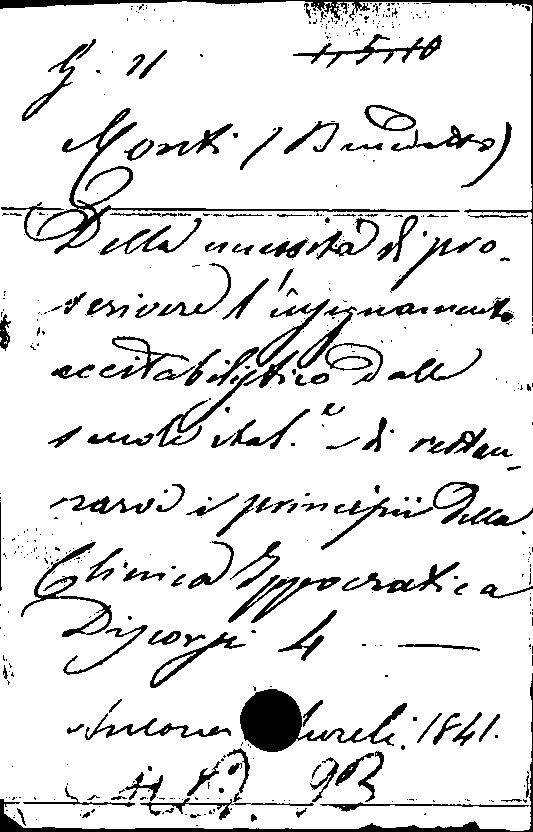 G. 11 1, 5, 10
Monti (Benedetto)
Della necessità di pro-
scrivere l'insegnamento
eccitabilistico dalle
scuole ital.e di restau-
rarvi i principii della
Clinica Ippocratica
Discorsi 4 —
Ancona Aureli. 1841.
93